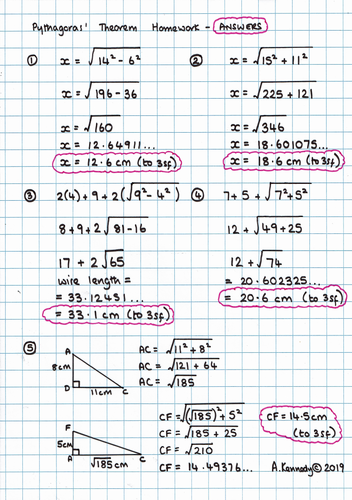 Pythagoras' Theorem Homework - ANSWERS
① x = √14² - 6²
x = √196 - 36
x = √160
x = 12.64911...
x = 12.6 cm (to 3sf)
② x = √15² + 11²
x = √225 + 121
x = √346
x = 18.601075...
x = 18.6 cm (to 3sf)
③ 2(4) + 9 + 2(√9² - 4²)
8 + 9 + 2√81 - 16
17 + 2√65
wire length =
= 33.12451...
= 33.1 cm (to 3sf)
④ 7 + 5 + √7² + 5²
12 + √49 + 25
12 + √74
= 20.602325...
= 20.6 cm (to 3sf)
⑤
A
8cm
D
11cm
C
AC = √11² + 8²
AC = √121 + 64
AC = √185
F
5cm
A
√185cm
C
CF = √(√185)² + 5²
CF = √185 + 25
CF = √210
CF = 14.49376...
CF = 14.5cm
(to 3sf)
A.Kennedy © 2019